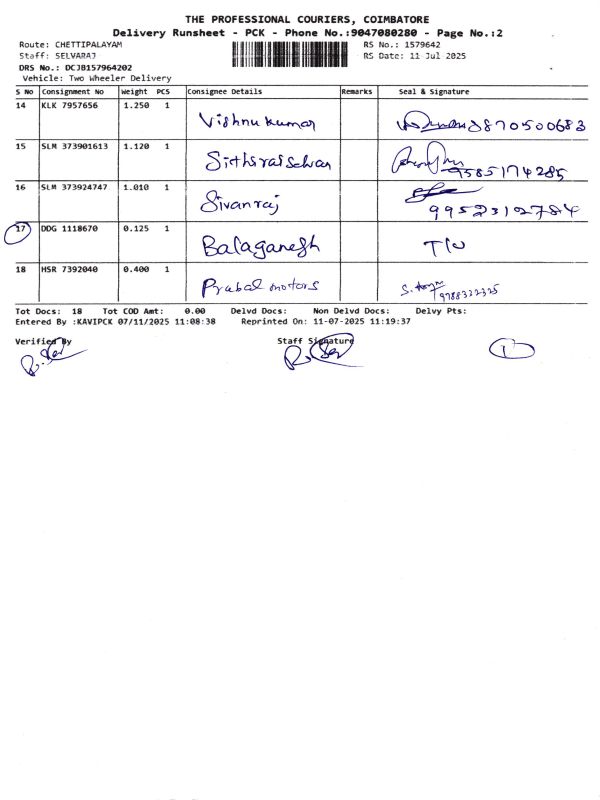 THE PROFESSIONAL COURIERS, COIMBATORE
Delivery Runsheet - PCK - Phone No.:9047080280 - Page No.:2
Route: CHETTIPALAYAM RS No.: 1579642
Staff: SELVARAJ RS Date: 11 Jul 2025
DRS No.: DCJB157964202
Vehicle: Two Wheeler Delivery
S No Consignment No Weight PCS Consignee Details Remarks Seal & Signature
14 KLK 7957656 1.250 1 Vishnu kumar 8870500683
15 SLM 373901613 1.120 1 9585174285
16 SLM 373924747 1.010 1 Sivanraj 9952312784
17 DDG 1118670 0.125 1 Balaganesh
18 HSR 7392040 0.400 1 Prabal motors 9788322325
Tot Docs: 18 Tot COD Amt: 0.00 Delvd Docs: Non Delvd Docs: Delvy Pts:
Entered By :KAVIPCK 07/11/2025 11:08:38 Reprinted On: 11-07-2025 11:19:37
Verified By Staff Signature
1